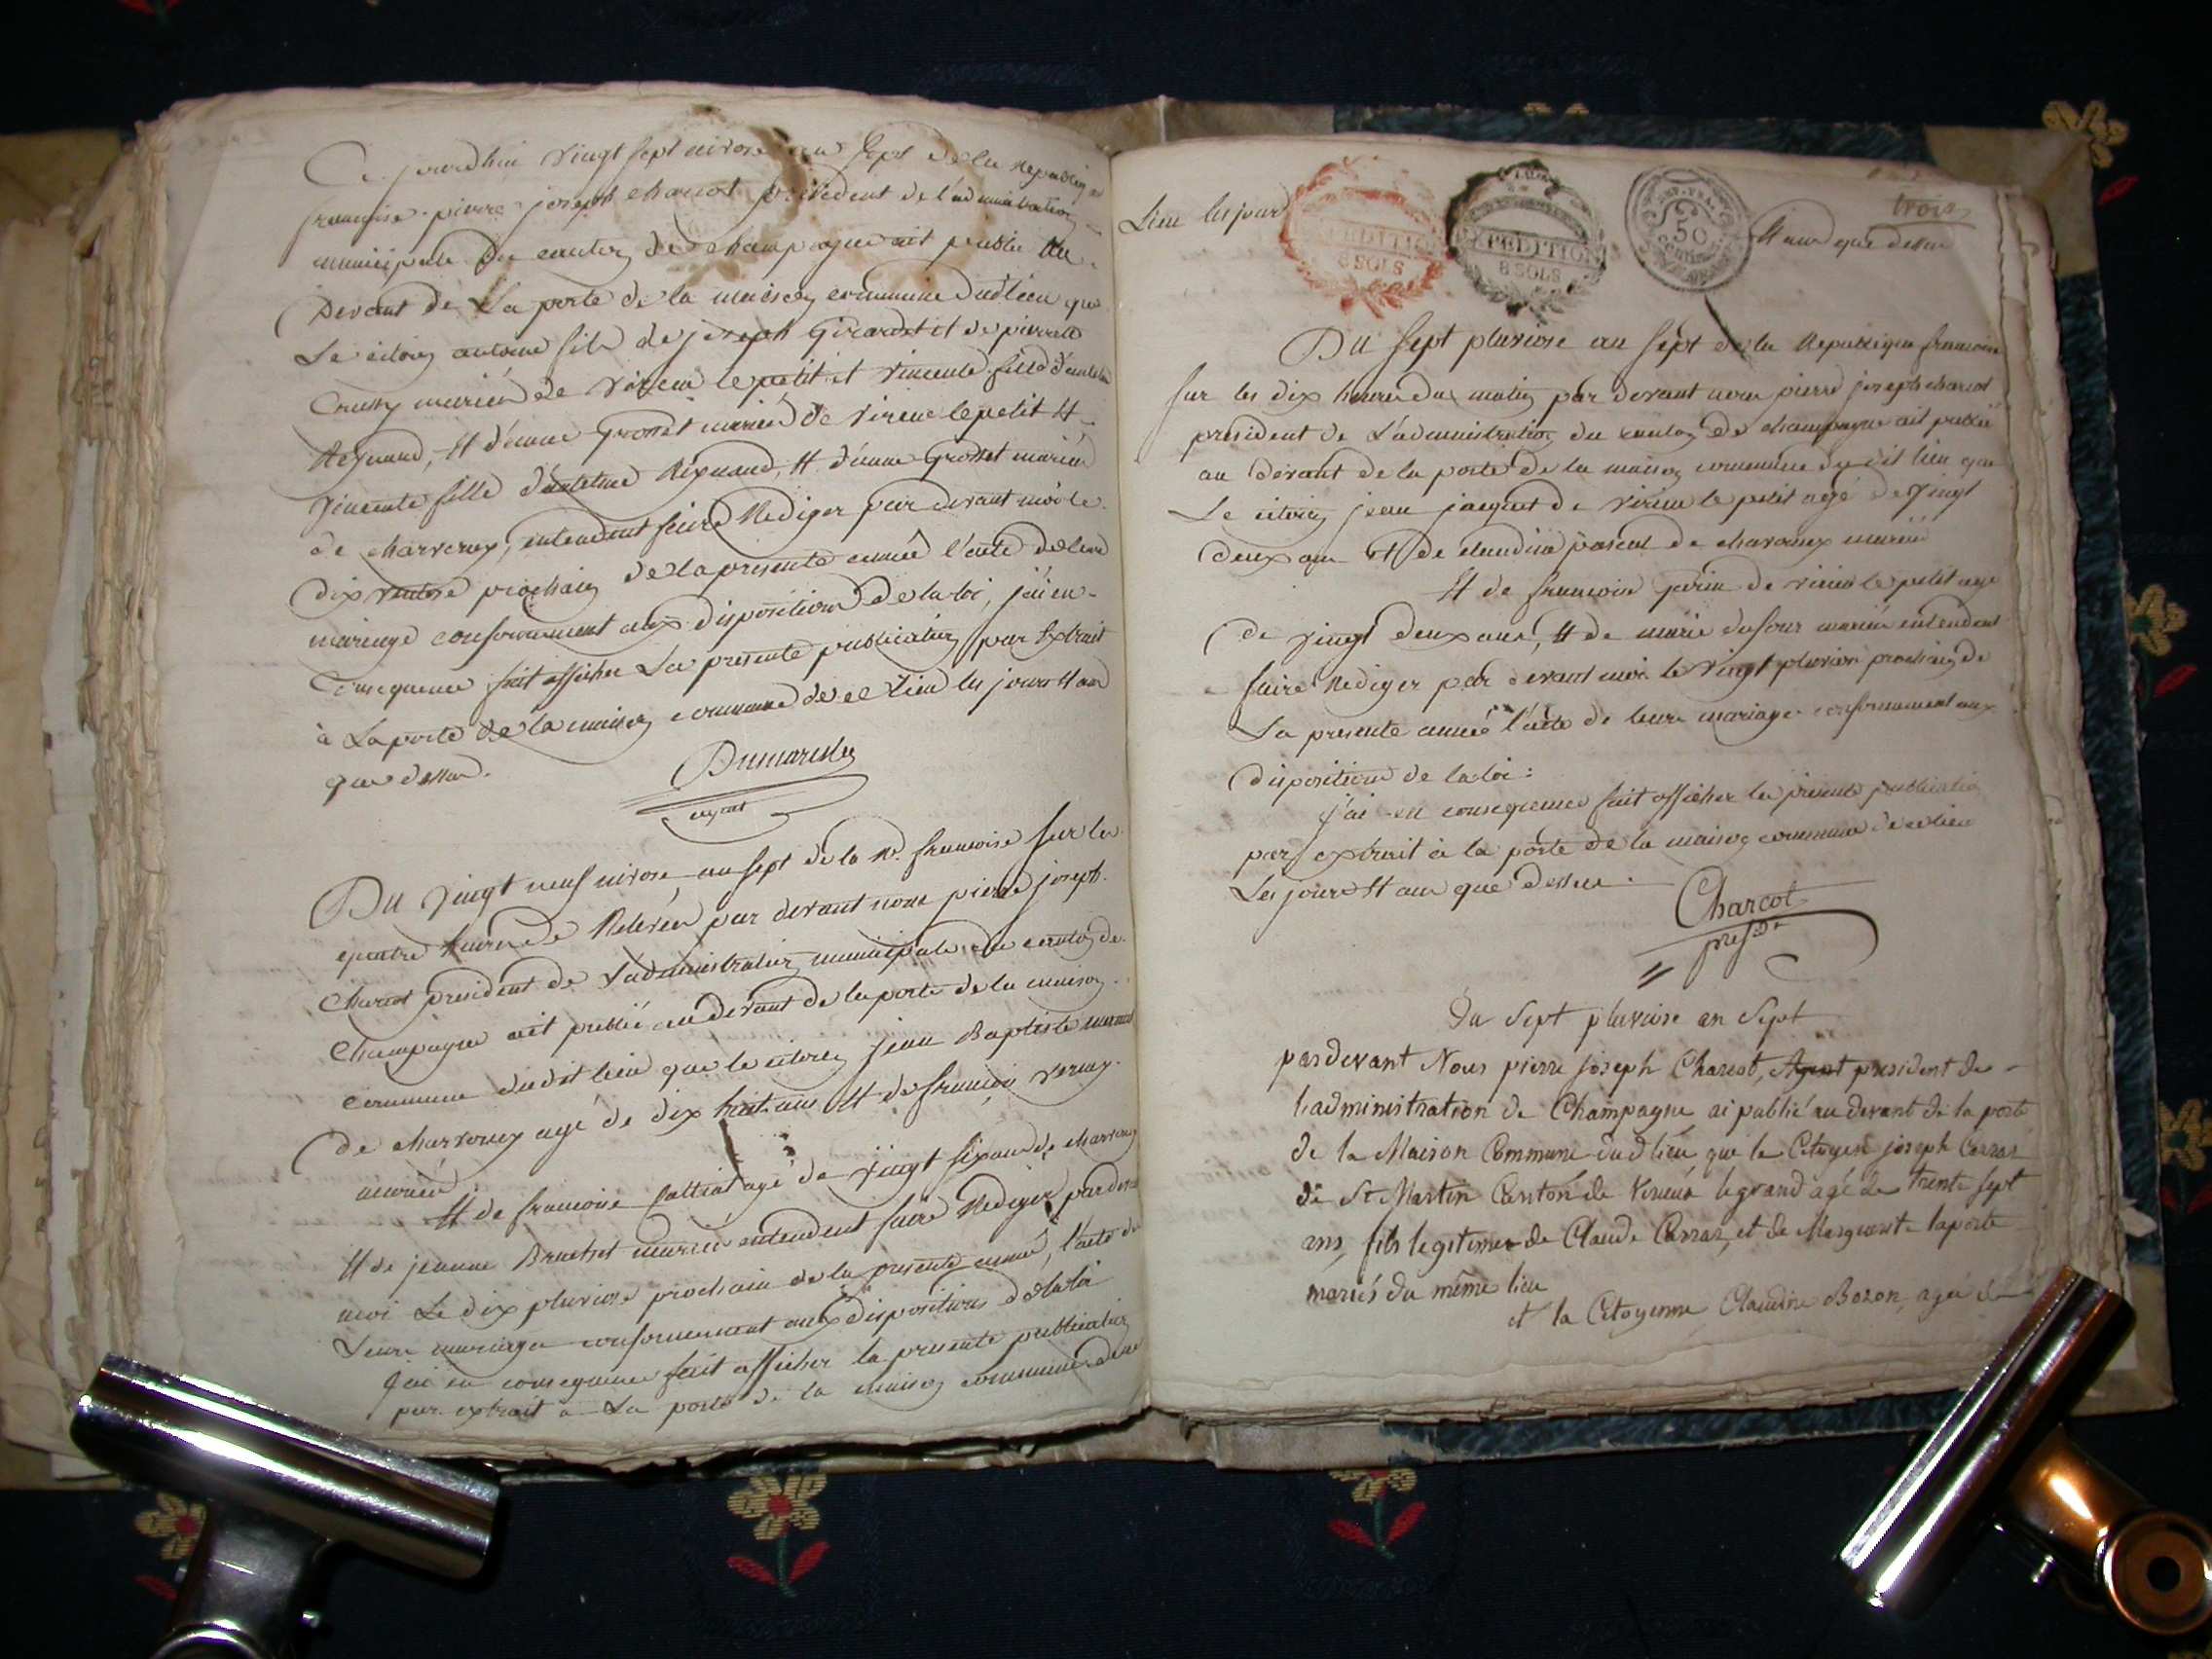 Ce jourdhui vingt sept nivose an sept de la Republique
francoise pierre joseph charcot president de l'administration
municipale du canton de champagne ait publié au
devant de La porte de la maison commune dudt lieu que
Le citoien antoine fils de joseph Girardet et de pierrette
mariés de virieu le petit et vincente fille d'antelme
Reynaud, et d'anne Grosset mariés de virieu le petit et
vincente fille d'antelme Reynaud, et d'anne Grosset mariés
de charvonex, entendent faire Rediger par devant moi le
dix ventose prochain de la presente année l'acte de leur
mariage conformement aux dispositions de la loi, j'ai en
consequence fait afficher La presente publication par Extrait
à La porte de la maison commune de ce lieu les jours et an
que dessus.
agent
DU vingt neuf nivose an sept de la R. francoise sur les
quatre heures de Relevée par devant nous pierre joseph
charcot president de L'administration municipale du canton de
champagne ait publié au devant de la porte de la maison
commune dudit lieu que le citoien jean Baptiste
de charvonex agé de dix huit ans et de francois
mariés
et de francoise agé de vingt six ans de charvonex
et de jeanne mariés entendent faire Rediger par devant
moi Le dix pluviose prochain de la presente année l'acte de
Leur mariage conformement aux dispositions de la loi
j'ai en consequence fait afficher la presente publication
par extrait a La porte de la maison commune de ce
Lieu les jours
EXPEDITION
8 SOLS
EXPEDITION
8 SOLS
50
centim
et an que dessus
trois
DU sept pluviose an sept de la Republique francoise
sur les dix heures du matin par devant nous pierre joseph charcot
president de L'administration du canton de champagne ait publié
au devant de la porte de la maison commune dudit lieu que
Le citoien jean jacquet de virieu le petit agé de vingt
deux ans et de claudine pascal de charvonex mariés
et de francoise de virieu le petit agé
de vingt deux ans, et de marie dufour mariés entendent
faire Rediger par devant moi le vingt pluviose prochain de
La presente année l'acte de leur mariage conformement aux
dispositions de la loi:
j'ai en consequence fait afficher la presente publication
par extrait à la porte de la maison commune de ce lieu
Les jours et an que dessus.
Charcot
presdt
Du Sept pluviose an Sept
pardevant Nous pierre joseph Charcot, Agent president de
l'administration de Champagne ai publié au devant de la porte
de la Maison Commune dud lieu que le Citoyen joseph Carraz
de St Martin Canton de Virieux le grand agé de trente sept
ans, fils legitime de Claude Carraz, et de Marguerite laporte
mariés du même lieu
et la Citoyenne Claudine Bozon, agée de